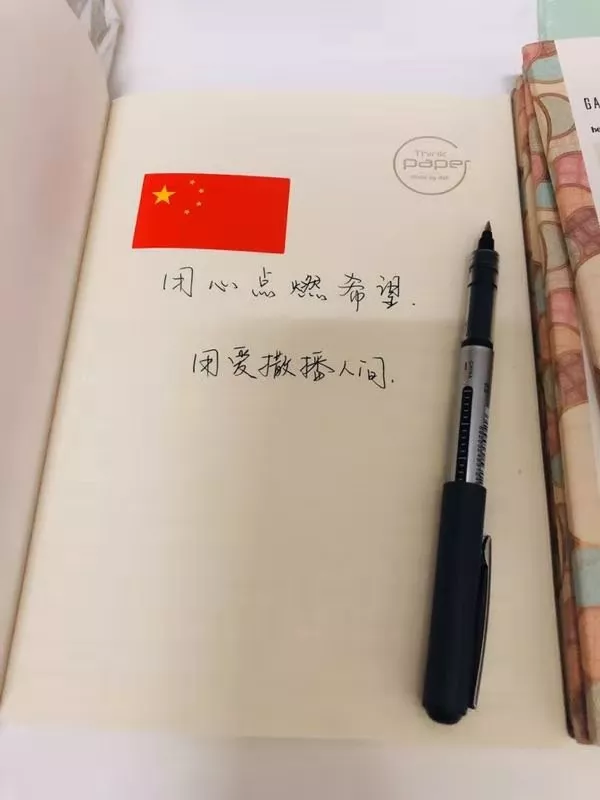 Think
paper
用心点燃希望.
用爱撒播人间.
GA